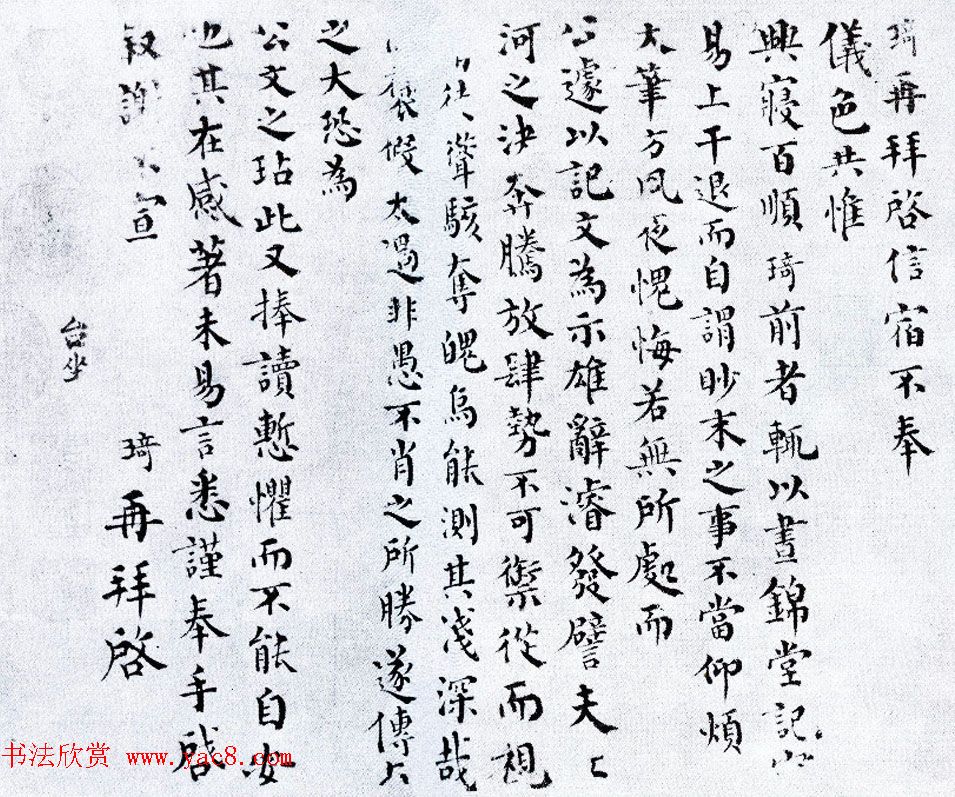 琦再拜啓信宿不奉
儀色共惟
興寢百順琦前者輒以晝錦堂記
易上干退而自謂眇末之事不當仰煩
大筆方夙夜愧悔若無所處而
公遽以記文為示雄辭濬發譬夫
河之決奔騰放肆勢不可禦從而視
徒聳駭奪魄烏能測其淺深哉
褒假太過非愚不肖之所勝遂傳
之大恐為
公文之玷此又捧讀慙懼而不能自安
也其在感著未易言悉謹奉手啓
叙謝不宣
琦再拜啓
台坐
书法欣赏 www.yac8.com